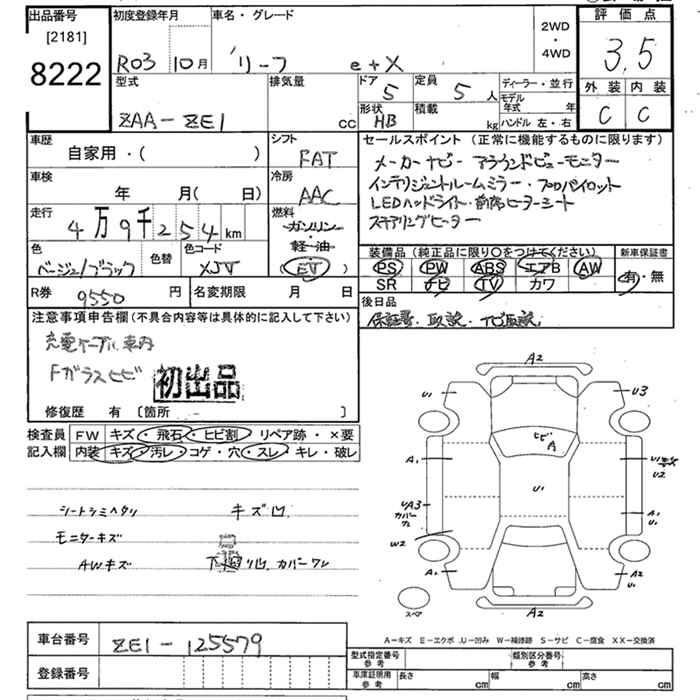 出品番号 初度登録年月 車名・グレード 2WD・4WD 評価点
[2181]
8222
R03 10月 リーフ e+X 3.5
型式 排気量 ドア 定員 ディーラー・並行 外装 内装
5 5人 モデル年式 年
ZAA-ZE1 cc 形状 HB 積載 kg ハンドル 左・右 C C
車歴 シフト セールスポイント (正常に機能するものに限ります)
自家用・( ) FAT メーカーナビー アラウンドビューモニター
車検 冷房 インテリジェントルームミラー・プロパイロット
年 月( 日) AAC LEDヘッドライト・前席ヒーターシート
走行 燃料 ステアリングヒーター
4万9千254km ガソリン・
軽油・
色 色替 色コード 装備品 (純正品に限り○をつけてください) 新車保証書
ベージュ/ブラック XJV (EV) PS PW ABS エアB AW 有・無
SR ナビ TV カワ
R券 9550円 名変期限 月 日 後日品
保証書・取説・ナビ取説
注意事項申告欄(不具合内容等は具体的に記入して下さい)
充電ケーブル車内
Fガラスヒビ 初出品
修復歴 有 〔箇所 - 〕
検査員 FW キズ・飛石・ヒビ割 リペア跡・×要
記入欄 内装 キズ・汚レ・コゲ・穴・スレ・キレ・破レ
シートシミヘタリ キズ凹
モニターキズ
AWキズ リ凹 カバーワレ
A2
U1 U3
ヒビ A
A1 U1 U2
U1
UA3 カバーワレ A1 U1
W2
A1 A2 U1
スペア A2
A-キズ E-エクボ U-凹み W-補修跡 S-サビ C-腐食 XX-交換済
車台番号 ZE1-125579
型式指定番号 参考 類別区分番号 参考
登録番号 車庫証明用 参考 長さ cm 幅 cm 高さ cm